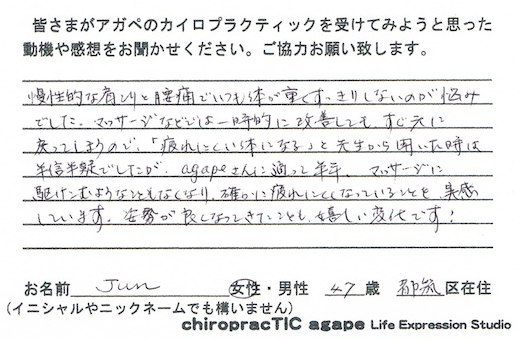 皆さまがアガペのカイロプラクティックを受けてみようと思った
動機や感想をお聞かせください。ご協力お願い致します。
慢性的な肩こりと腰痛でいつも体が重くすっきりしないのが悩み
でした。マッサージなどでは一時的に改善しても、すぐ元に
戻ってしまうので、「疲れにくい体になる」と先生から聞いた時は
半信半疑でしたが、agapeさんに通って半年、マッサージに
駆けこむようなこともなくなり、確かに疲れにくくなっていることを実感
しています。姿勢が良くなってきたことも、嬉しい変化です!
お名前 Jun 女性・男性 47歳 都筑区在住
(イニシャルやニックネームでも構いません)
chiropracTIC agape Life Expression Studio